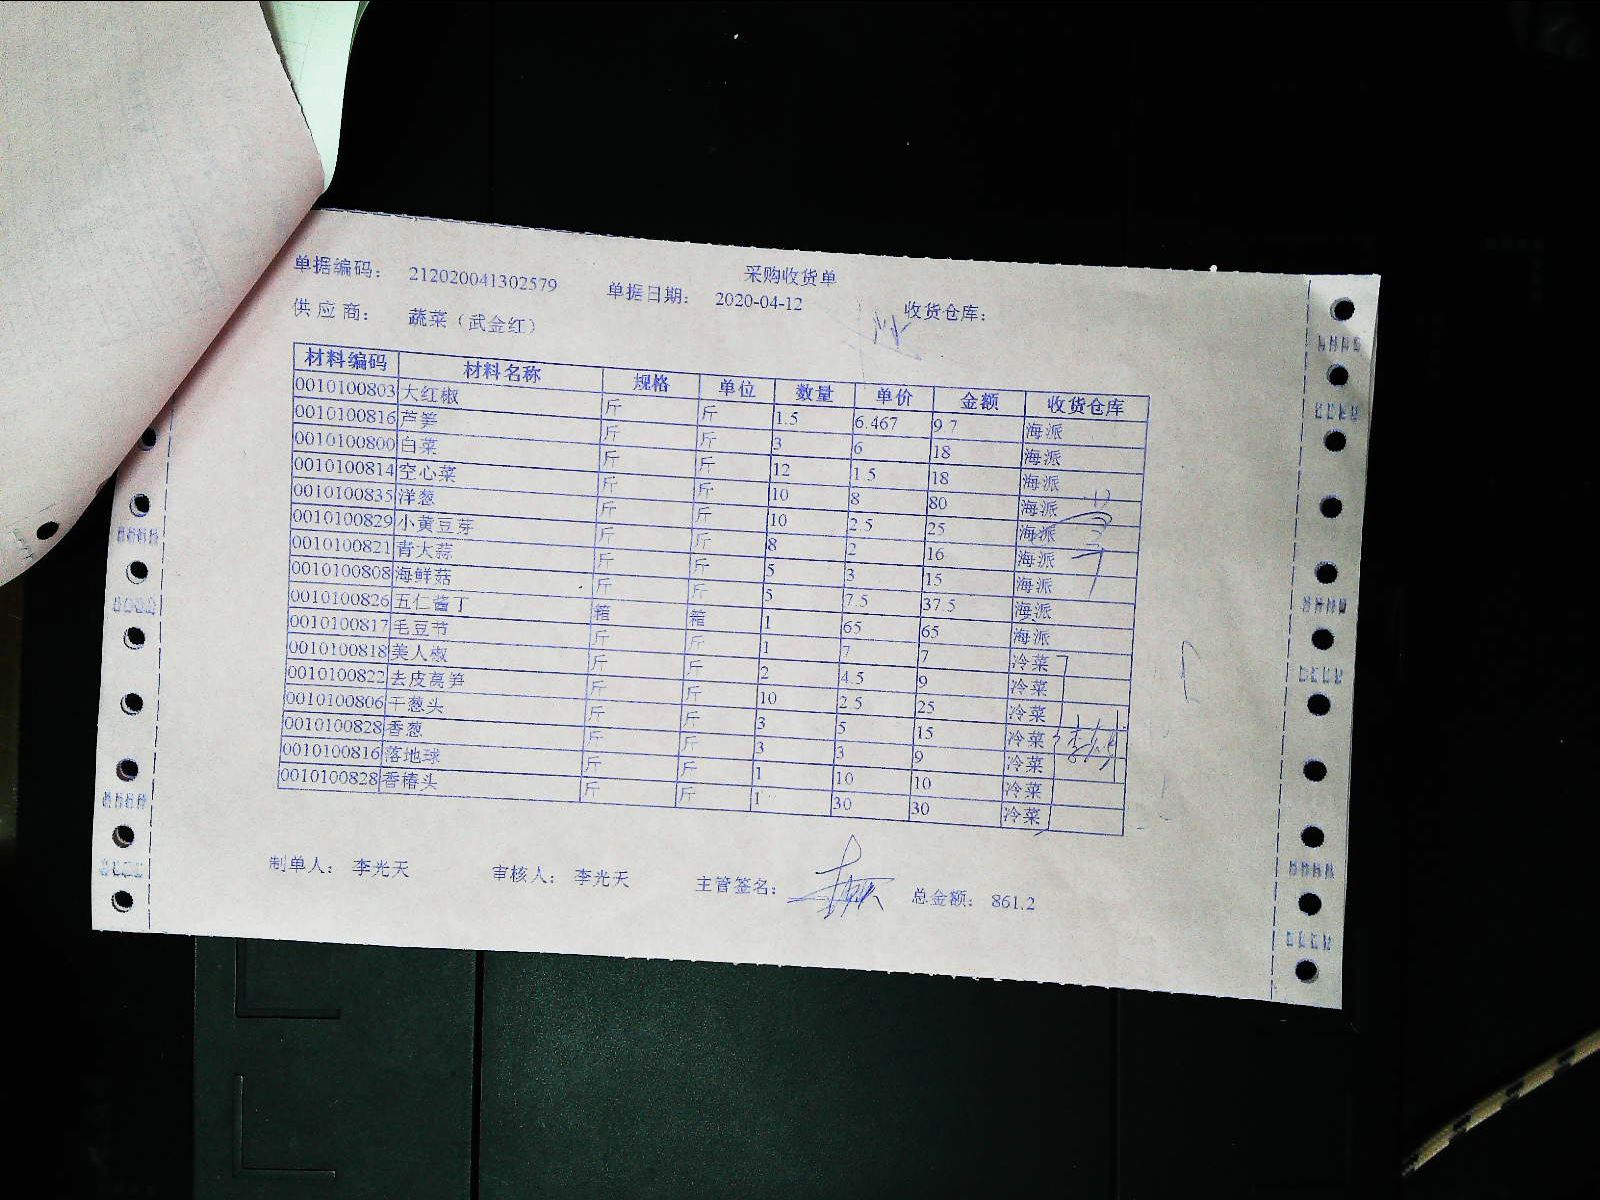 采购收货单
单据编码： 212020041302579 单据日期： 2020-04-12 收货仓库：
供应商： 蔬菜（武金红）
材料编码 材料名称 规格 单位 数量 单价 金额 收货仓库
0010100803 大红椒 斤 斤 1.5 6.467 9.7 海派
0010100816 芦笋 斤 斤 3 6 18 海派
0010100800 白菜 斤 斤 12 1.5 18 海派
0010100814 空心菜 斤 斤 10 8 80 海派
0010100835 洋葱 斤 斤 10 2.5 25 海派
0010100829 小黄豆芽 斤 斤 8 2 16 海派
0010100821 青大蒜 斤 斤 5 3 15 海派
0010100808 海鲜菇 斤 斤 5 7.5 37.5 海派
0010100826 五仁酱丁 箱 箱 1 65 65 海派
0010100817 毛豆节 斤 斤 1 7 7 冷菜
0010100818 美人椒 斤 斤 2 4.5 9 冷菜
0010100822 去皮莴笋 斤 斤 10 2.5 25 冷菜
0010100806 干葱头 斤 斤 3 5 15 冷菜
0010100828 香葱 斤 斤 3 3 9 冷菜
0010100816 落地球 斤 斤 1 10 10 冷菜
0010100828 香椿头 斤 斤 1 30 30 冷菜
制单人： 李光天 审核人： 李光天 主管签名： 总金额： 861.2